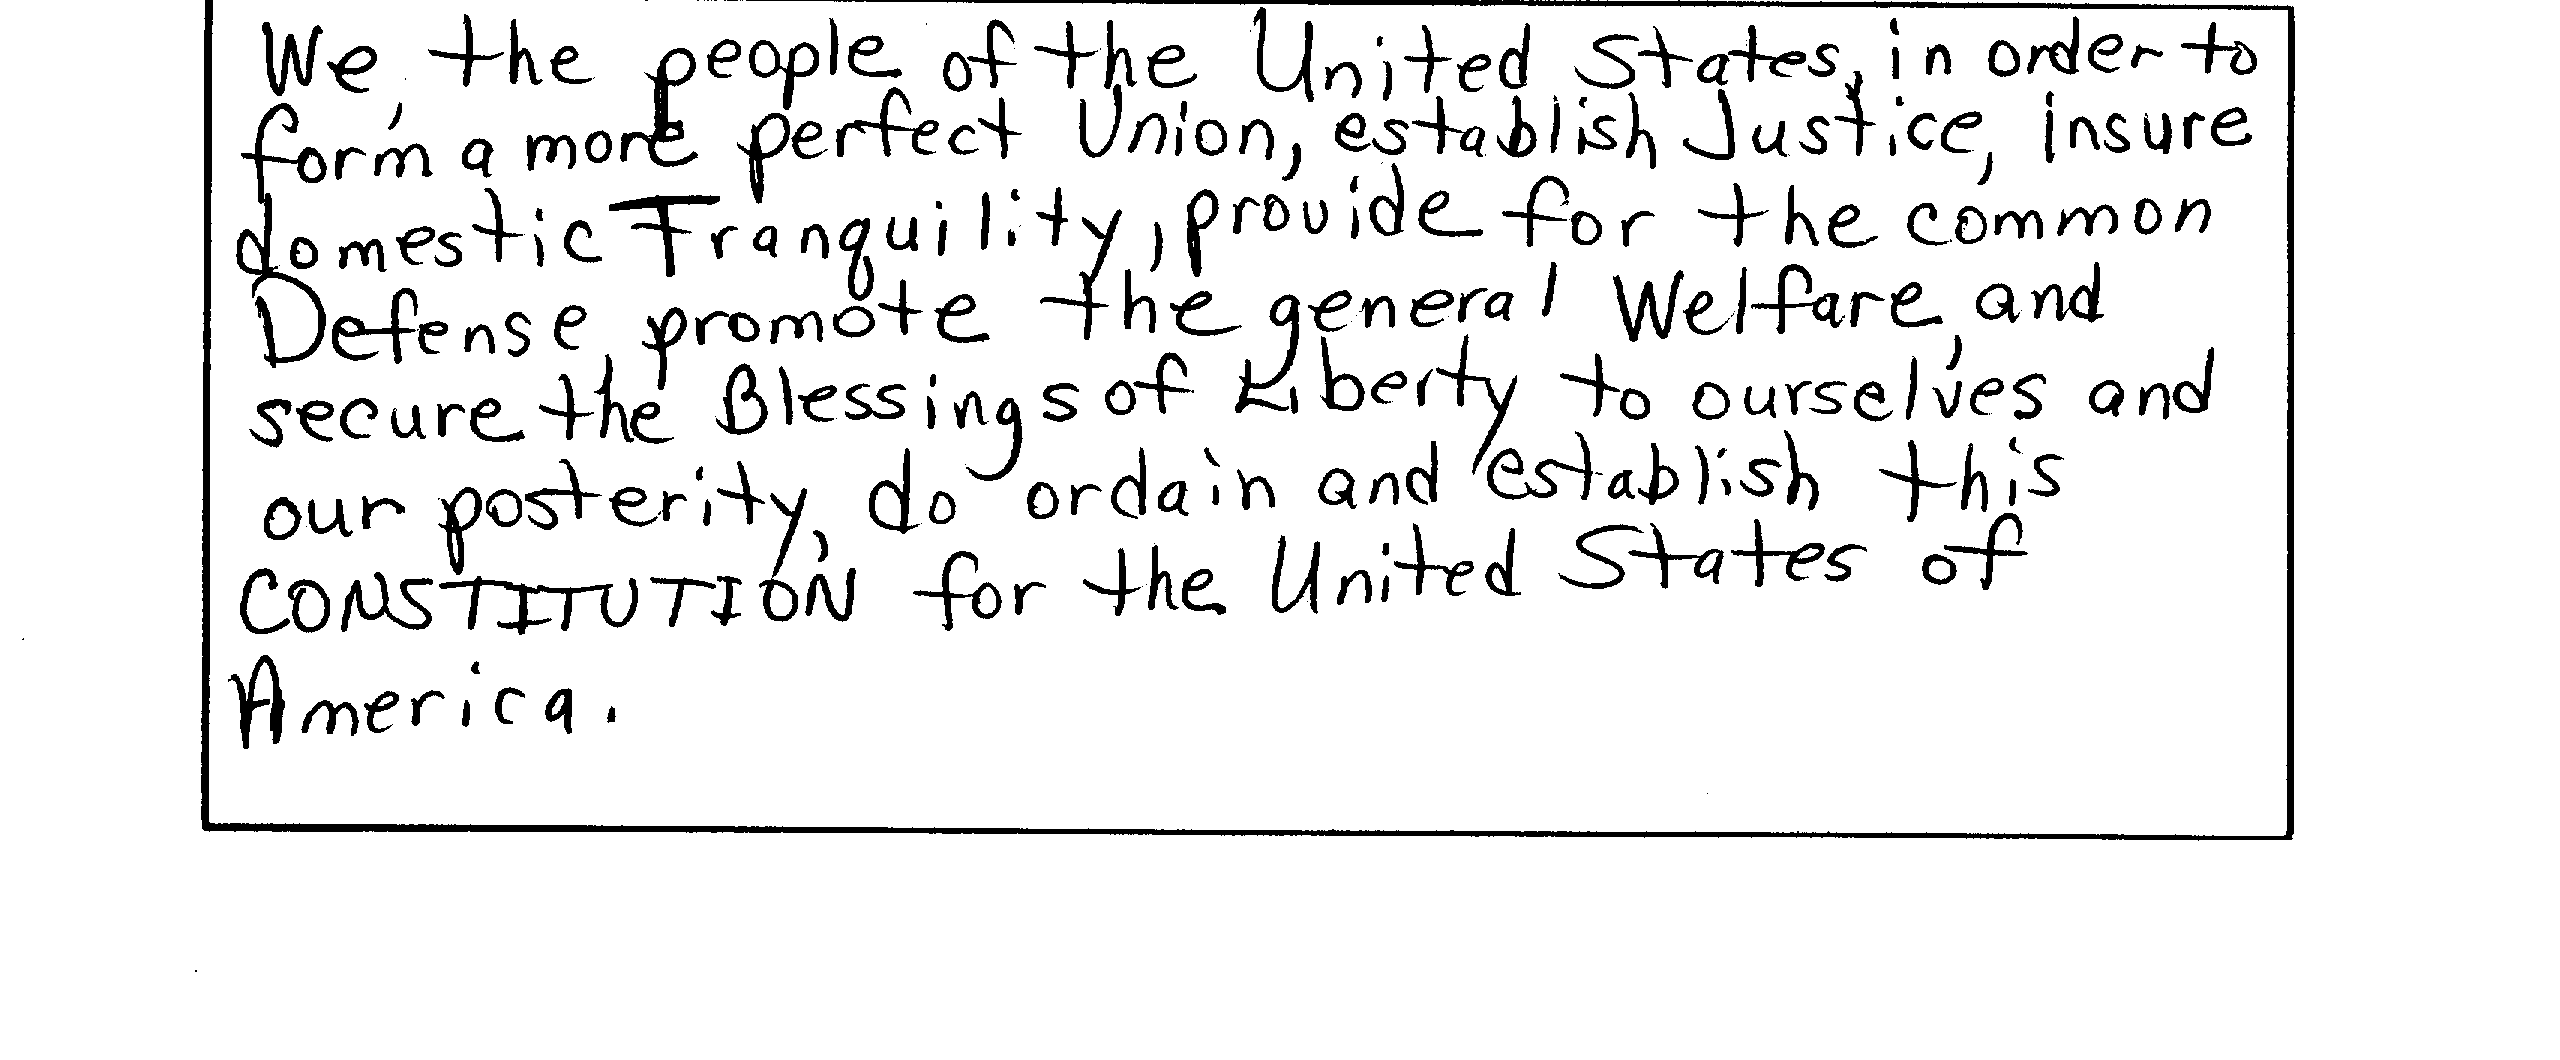 We, the people of the United States, in order to
form a more perfect Union, establish Justice, insure
domestic Tranquility, provide for the common
Defense, promote the general Welfare, and
secure the Blessings of Liberty to ourselves and
our posterity, do ordain and establish this
CONSTITUTION for the United States of
America.